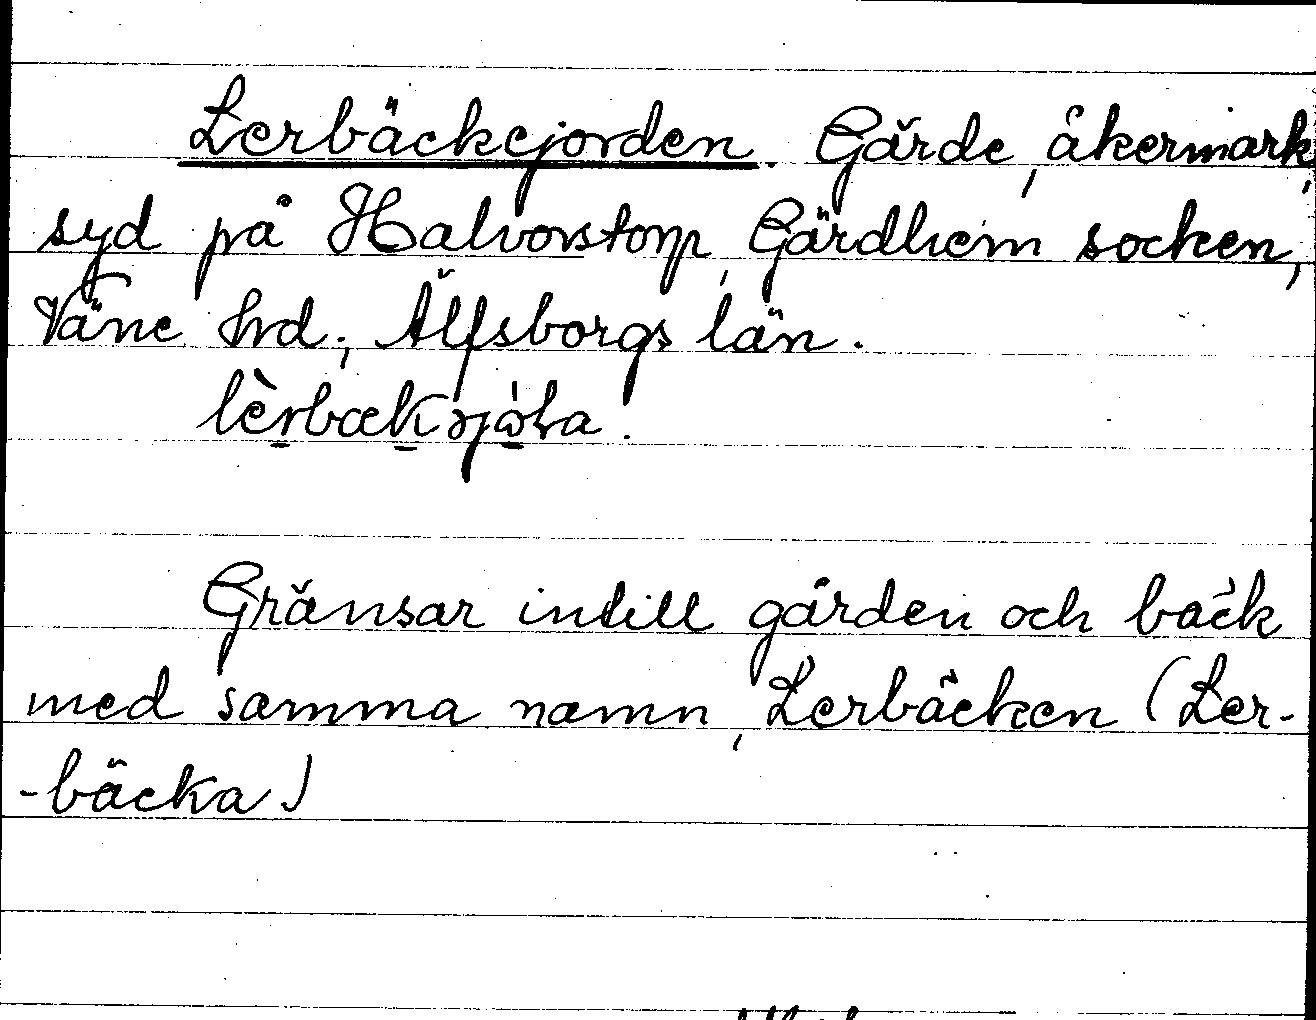 Lerbäckejorden. Gärde, åkermark,
syd på Halvorstorp, Gärdhem socken,
Väne hrd., Älfsborgs län.
Gränsar intill gården och bäck
med samma namn, Lerbäcken (Ler-
-bäcka)